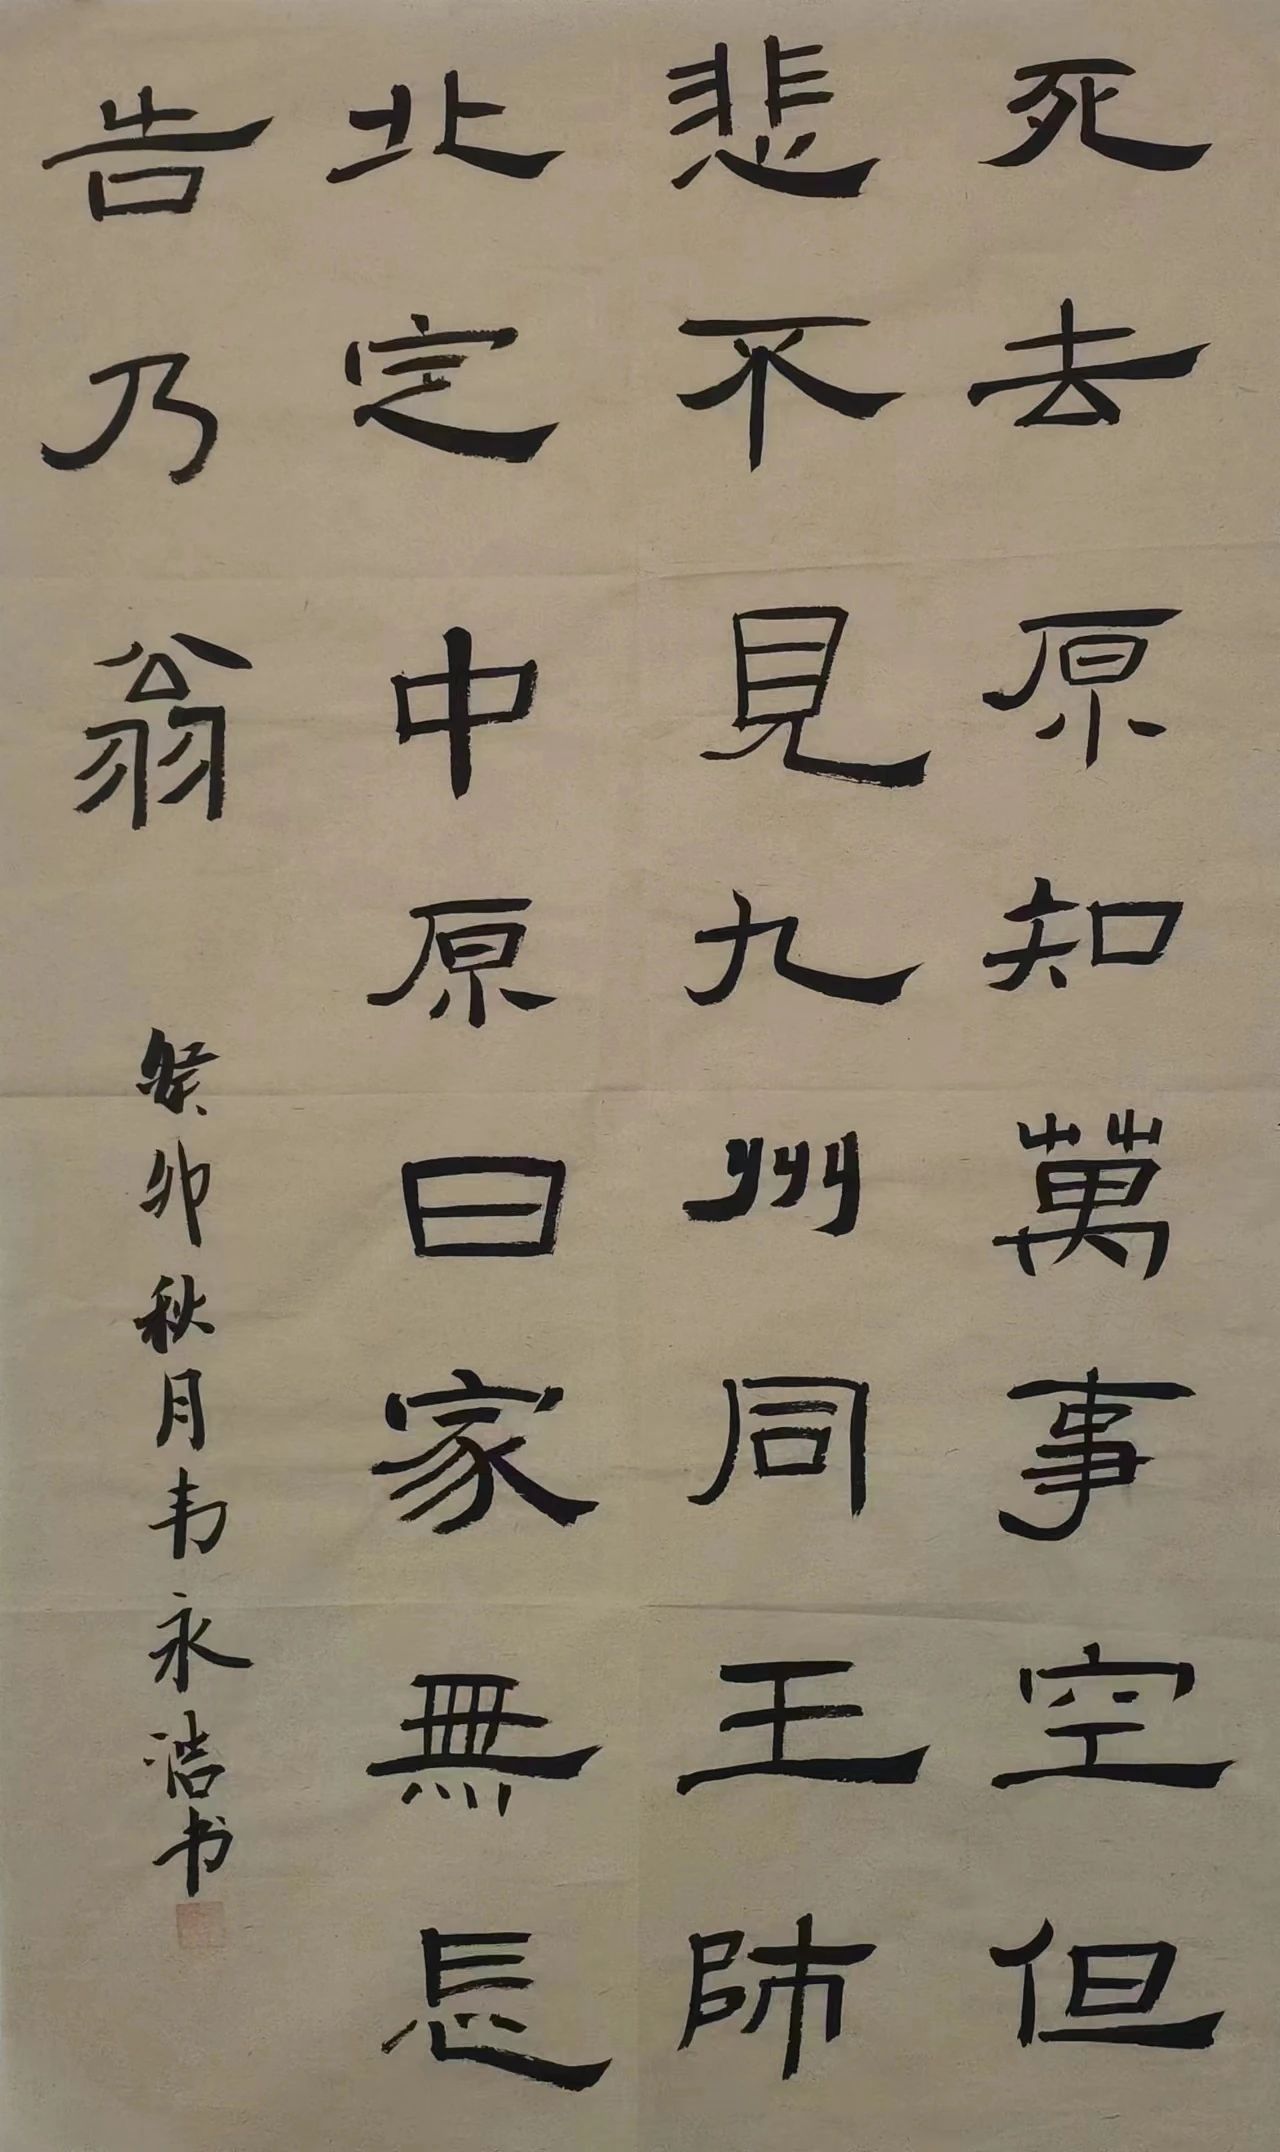 死去原知萬事空但
悲不見九州同王師
北定中原日家無忘
告乃翁
癸卯秋月韦永浩书